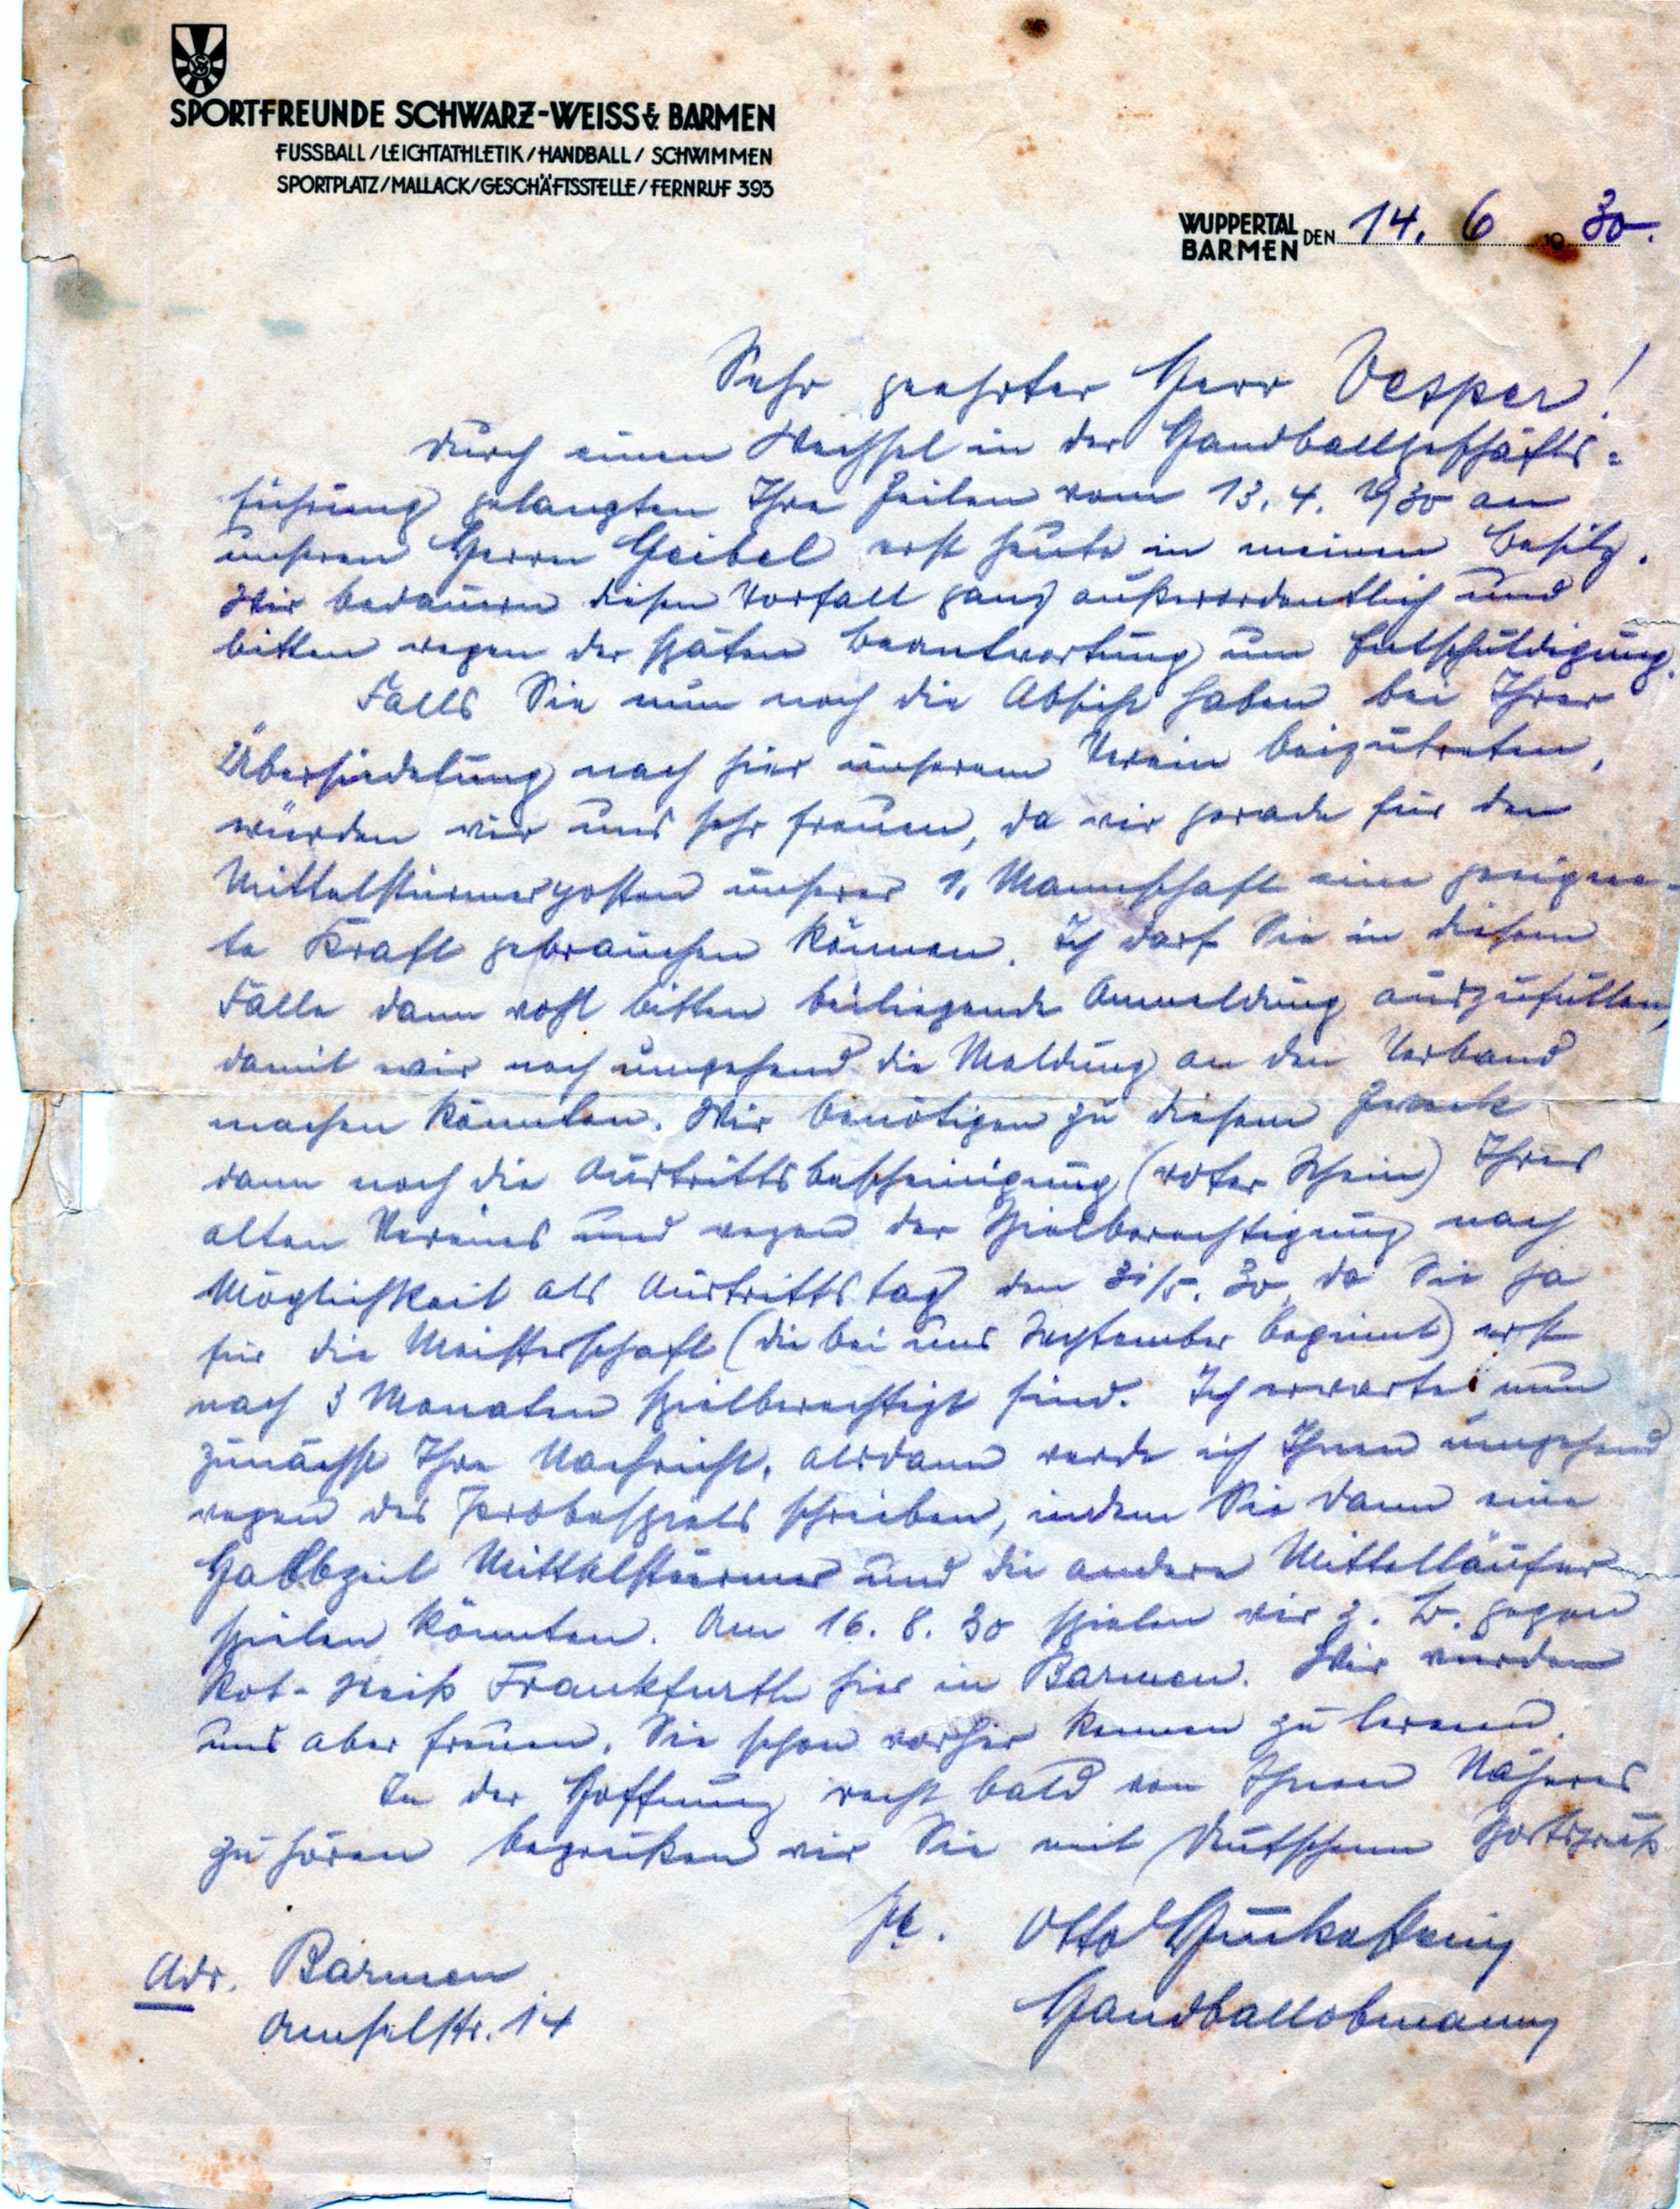 SPORTFREUNDE SCHWARZ-WEISS E.V. BARMEN
FUSSBALL/LEICHTATHLETIK/HANDBALL/SCHWIMMEN
SPORTPLATZ/MALLACK/GESCHÄFTSSTELLE/FERNRUF 393
WUPPERTAL
BARMEN DEN 14. 6 19 30.
Sehr geehrter Herr Vesper!
Durch einen Wechsel in der Handballgeschäfts=
führung gelangten Ihre Zeilen vom 13. 4. 1930 an
unseren Herrn Geibel erst heute in meinen Besitz.
Wir bedauern diesen Vorfall ganz außerordentlich und
bitten wegen der späten Beantwortung um Entschuldigung.
Falls Sie nun noch die Absicht haben bei Ihrer
Übersiedelung nach hier unserem Verein beizutreten,
würden wir uns sehr freuen, da wir gerade für den
Mittelstürmerposten unserer 1. Mannschaft eine geeigne-
te Kraft gebrauchen können. Ich darf Sie in diesem
Falle dann wohl bitten beiliegende Anmeldung auszufüllen,
damit wir noch umgehend die Meldung an den Verband
machen könnten. Wir benötigen zu diesem Zweck
dann noch die Austrittsbescheinigung (roter Schein) Ihres
alten Vereines und wegen der Spielberechtigung nach
Möglichkeit als Austrittstag den 31/5. 30, da Sie ja
für die Meisterschaft (die bei uns September beginnt) erst
nach 3 Monaten spielberechtigt sind. Ich erwarte nun
zunächst Ihre Nachricht, alsdann werde ich Ihnen umgehend
wegen des Probespiels schreiben, indem Sie dann eine
Halbzeit Mittelstürmer und die andere Mittelläufer
spielen könnten. Am 16. 8. 30 spielen wir z. B. gegen
Rot-Weiß Frankfurth hier in Barmen. Wir würden
uns aber freuen, Sie schon vorher kennen zu lernen.
In der Hoffnung recht bald von Ihnen Näheres
zu hören begrüßen wir Sie mit Deutschem Sportsgruß
Otto
Handballobmann
Adr. Barmen
Amselstr. 14